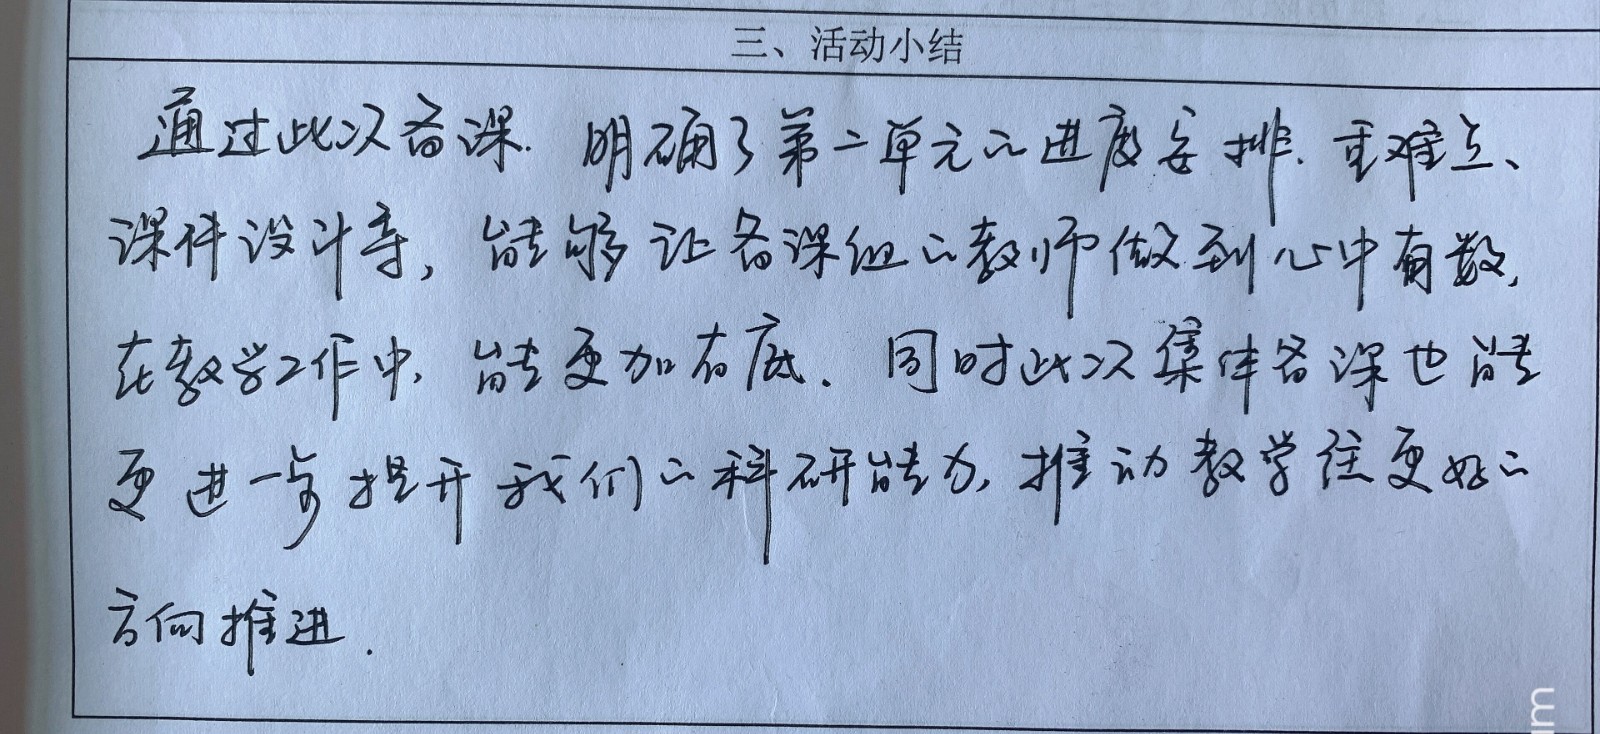 三、活动小结
通过此次备课.明确了第二单元的进度安排.重难点、
课件设计等,能够让备课组的教师做到心中有数,
在教学工作中,能更加有底.同时此次集体备课也能
更进一步提升我们的科研能力,推动教学往更好的
方向推进.
um